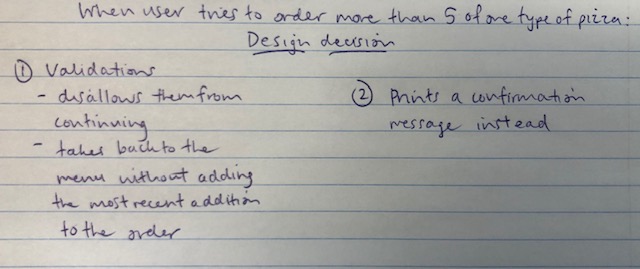 When user tries to order more than 5 of one type of pizza:
Design decision
① Validations
- disallows them from
continuing
- takes back to the
menu without adding
the most recent addition
to the order
② Prints a confirmation
message instead